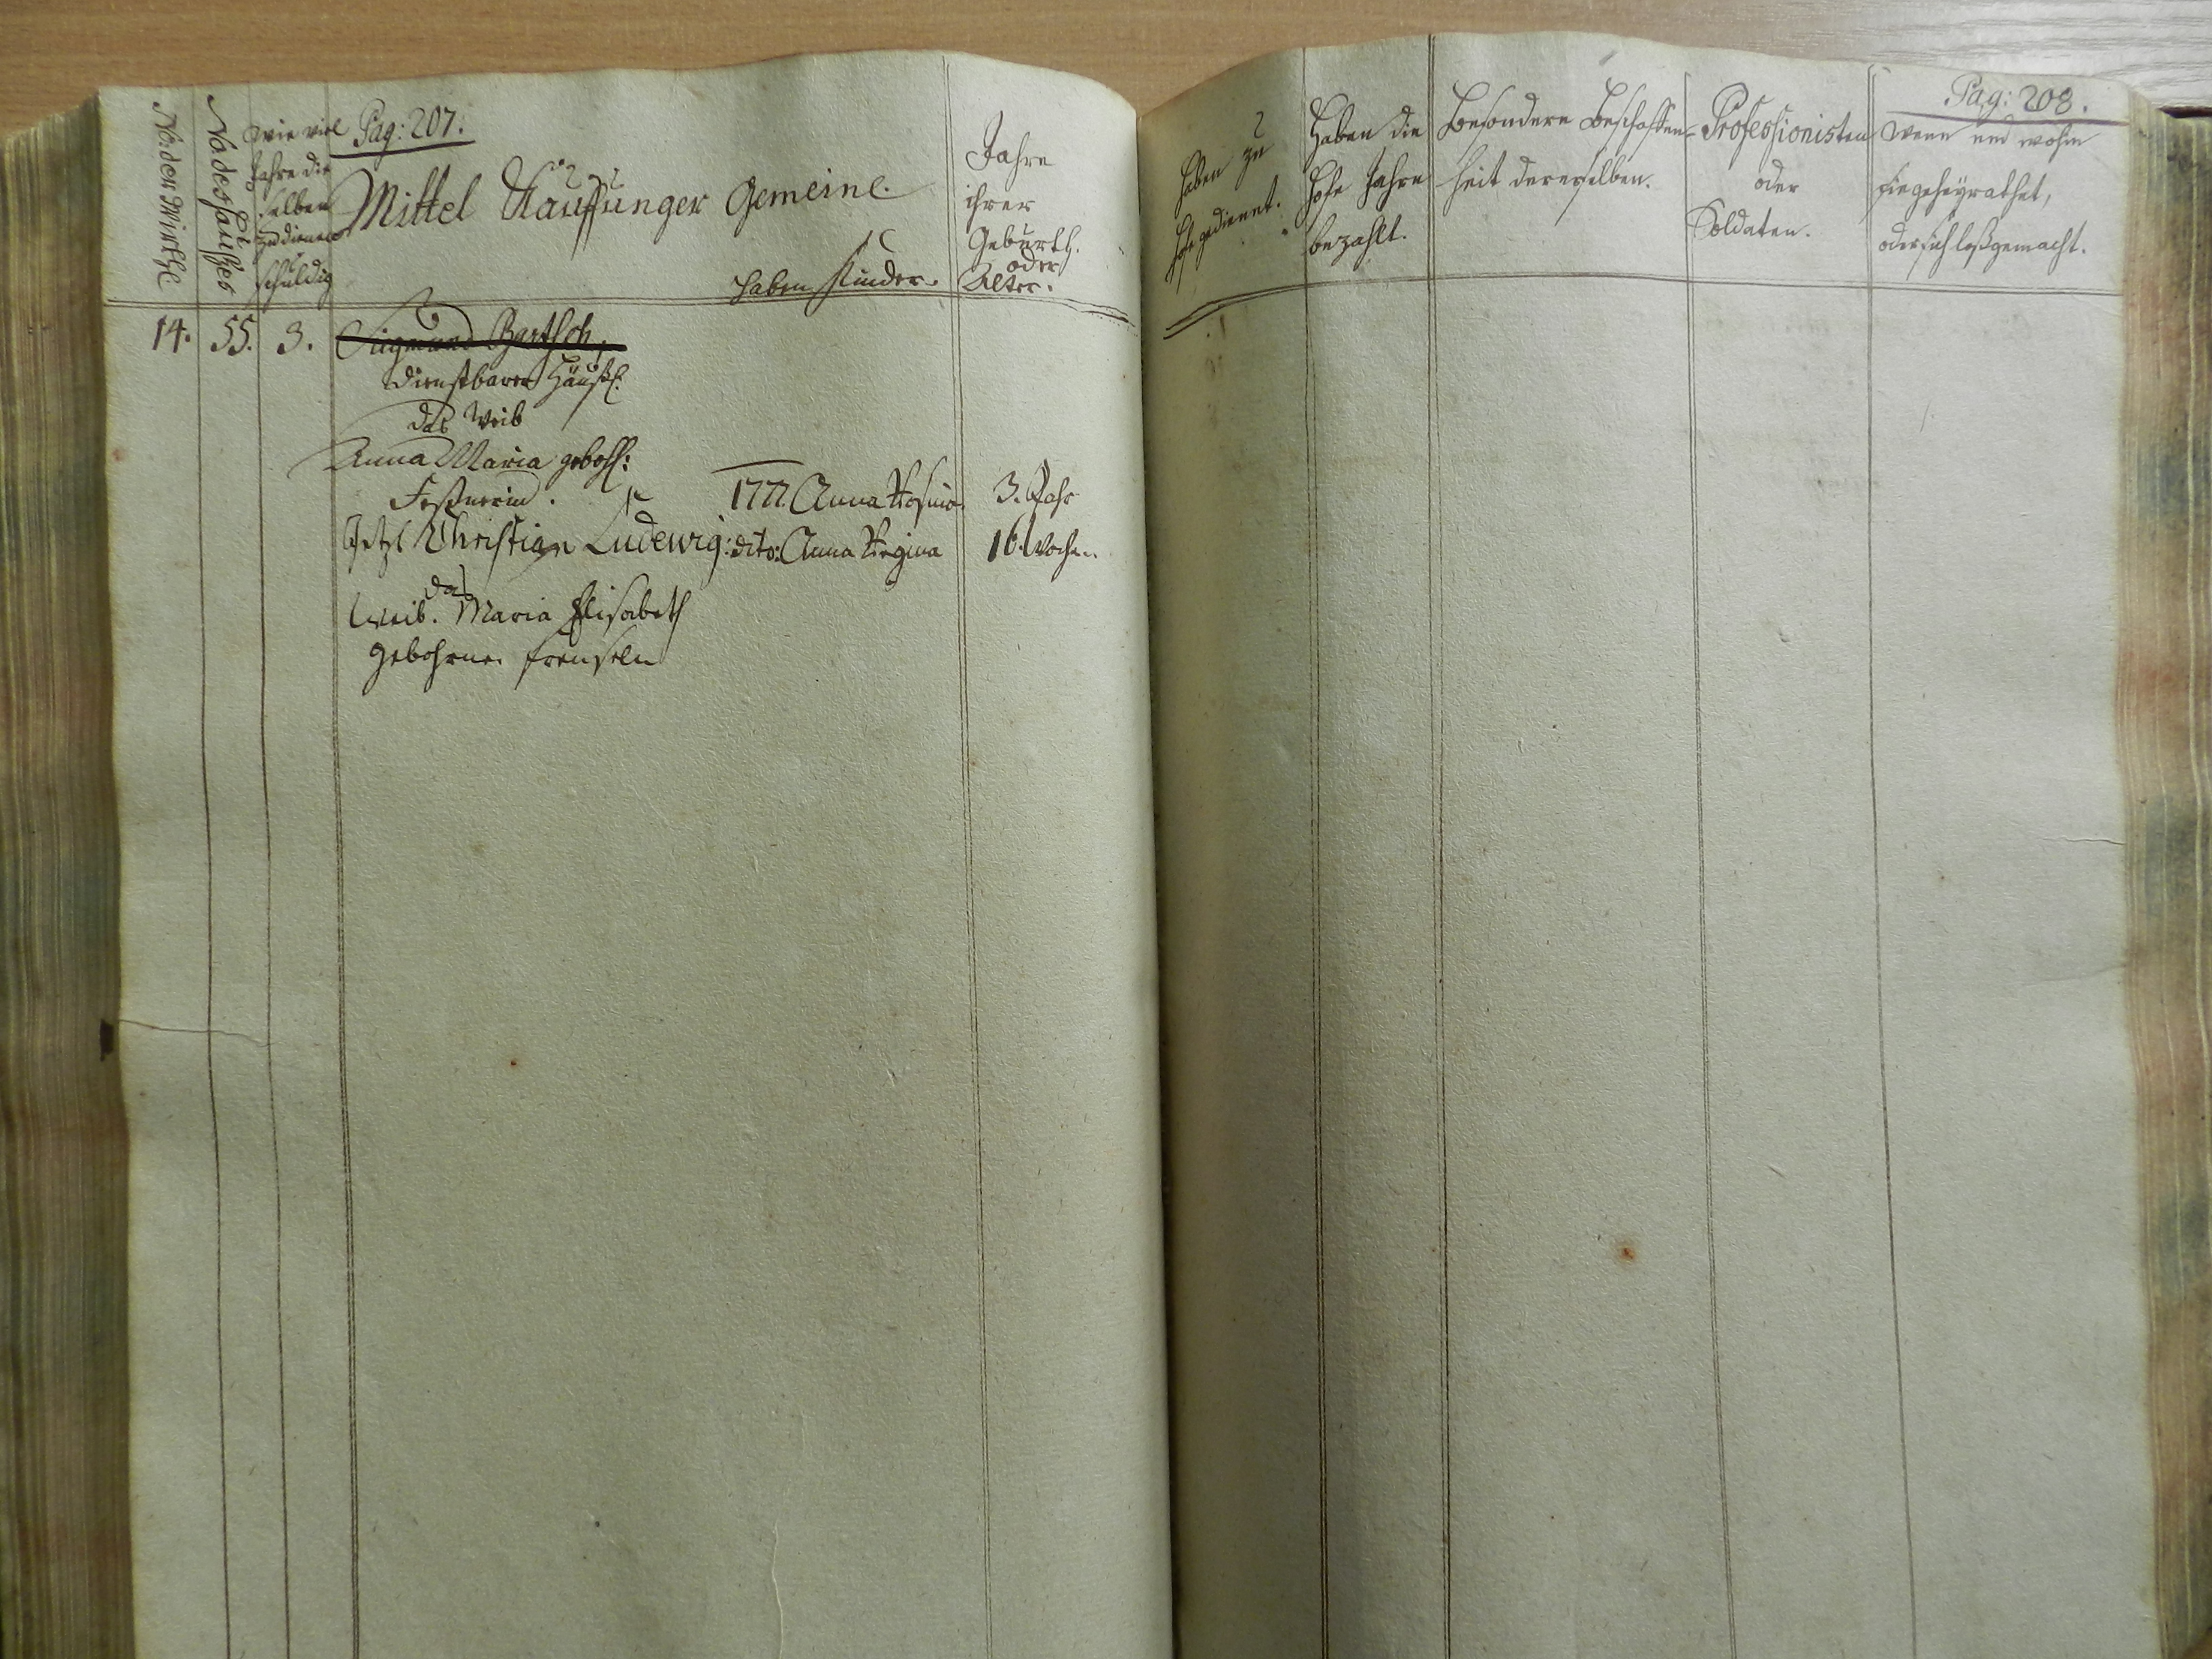 No: der Wirthe
No des Haußes
Wie viel
Jahre die
selben
zu dienen
schuldig
Pag: 207.
Mittel Kauffunger Gemeine.
haben Kinder.
Jahre
ihrer
Geburth.
oder
Alter.
14. 55. 3. Sigmund Bartsch,
dienstbarer Häußl.
das Weib
Anna Maria gebohr:
1777. Anna Rosina 3. Jahr
Jetzt Christian Ludewig: dito: Anna Regina 16 Wochen
das
Weib. Maria Elisabeth
gebohrne
Pag: 208.
haben zu
Hofe gedienet.
Haben die
Hofe Jahre
bezahlt.
Besondere Beschaffen-
heit derenselben.
Professionisten
oder
Soldaten.
Wenn und wohin
sie geheyrathet,
oder sich loßgemacht.